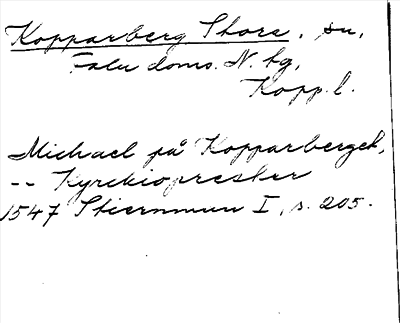 Kopparberg Stora, sn,
Falu doms. N. tg,
Kopp. l.
Michael på Kopparberget,
-- Kyrckioprester
1547 Stiernman I, s. 205.